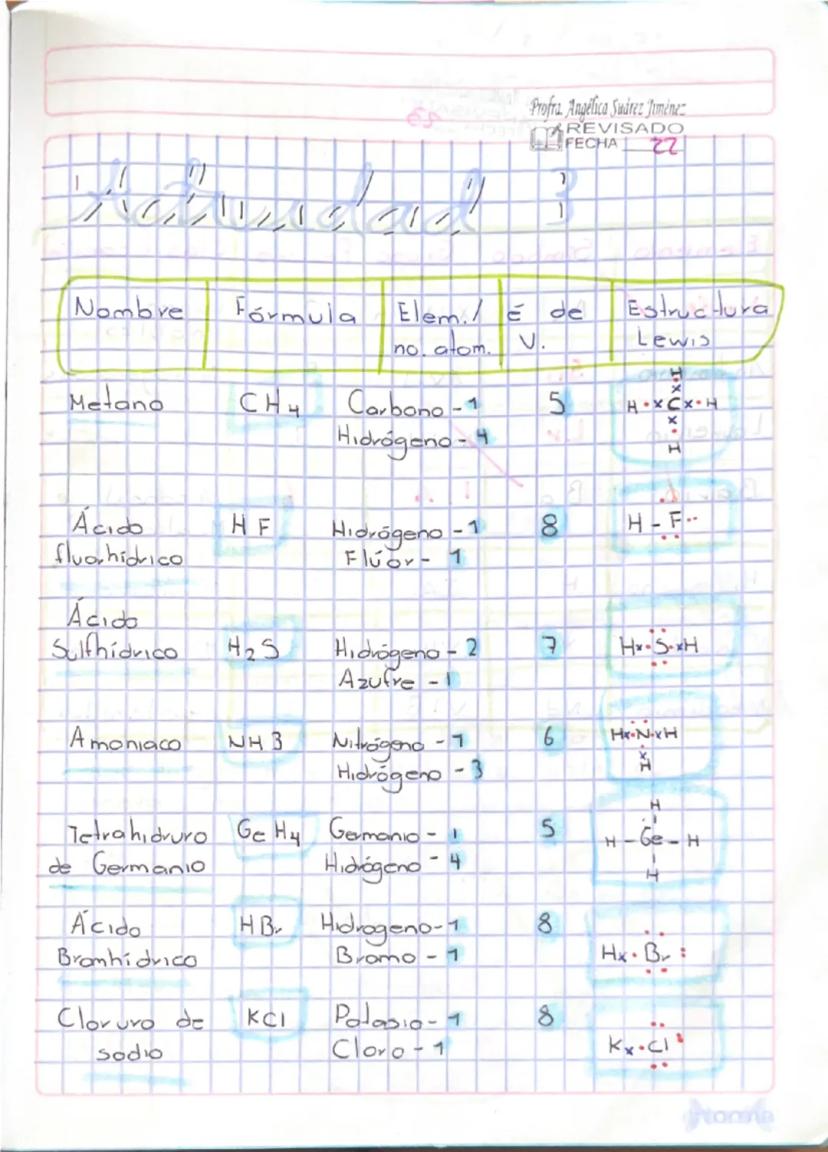 Profra. Angélica Suárez Jiménez
REVISADO
FECHA 22
Actividad 3
Nombre Fórmula Elem./ no. atom. É de V. Estructura Lewis
Metano CH4 Carbono - 1 5
Hidrógeno - 4
H
H C H
H
Ácido HF Hidrógeno - 1 8 H - F
fluorhídrico Flúor - 1
Ácido
Sulfhídrico H2S Hidrógeno - 2 7 Hx·S·xH
Azufre - 1
Amoniaco NH3 Nitrógeno - 1 6 Hx·N·xH
Hidrógeno - 3 H
Tetrahidruro GeH4 Germanio - 1 5
de Germanio Hidrógeno - 4
H
H - Ge - H
H
Ácido HBr Hidrogeno - 1 8
Bromhídrico Bromo - 1 Hx·Br:
Cloruro de KCl Potasio - 1 8
sodio Cloro - 1 Kx·Cl:
norma